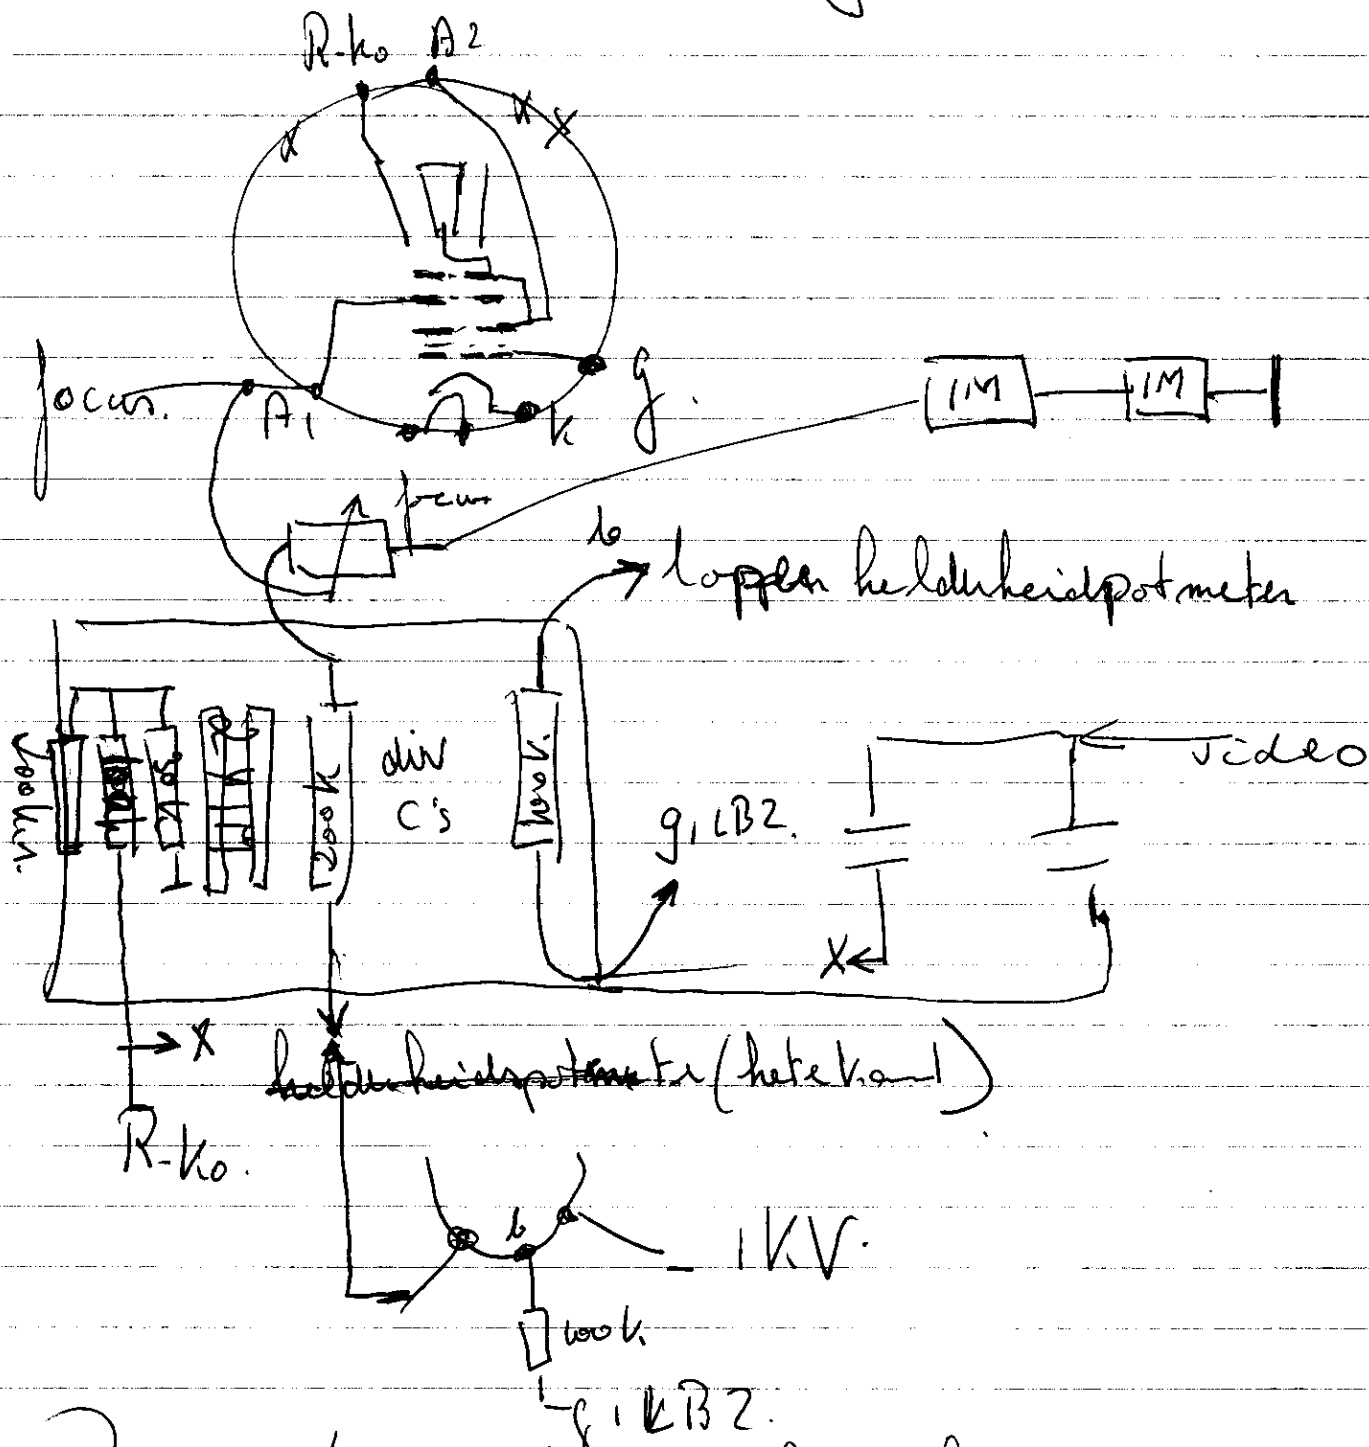 R-ko A2
x
x x
focus.
A1
k
g.
1M
1M
focus
b
loper helderheidspotmeter
100k
200k
div
C's
100k.
g1 CB2.
video
X
X
helderheidspotmeter (hete kant)
R-ko.
b
- 1KV.
100k
g1 KB2.